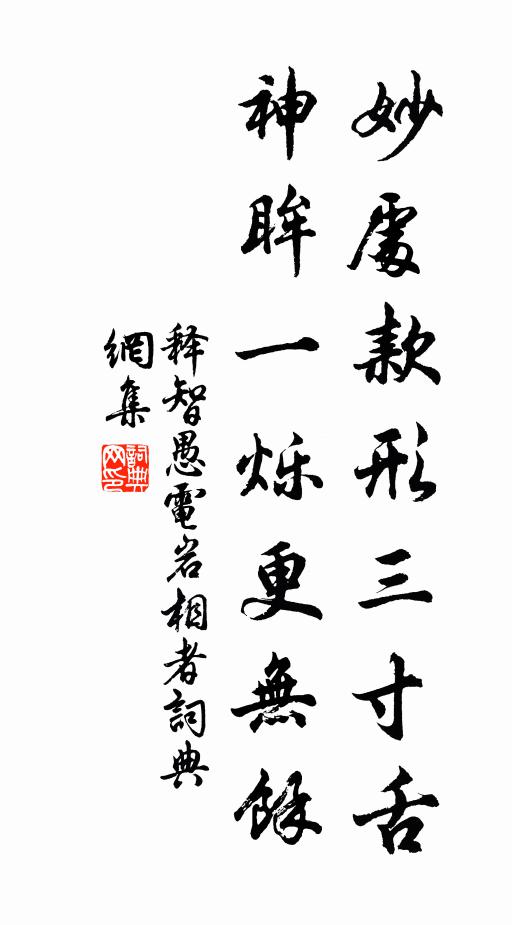 妙處款形三寸舌
神眸一烁更無餘
释智愚電岩相者詞典
網集
詞典网印